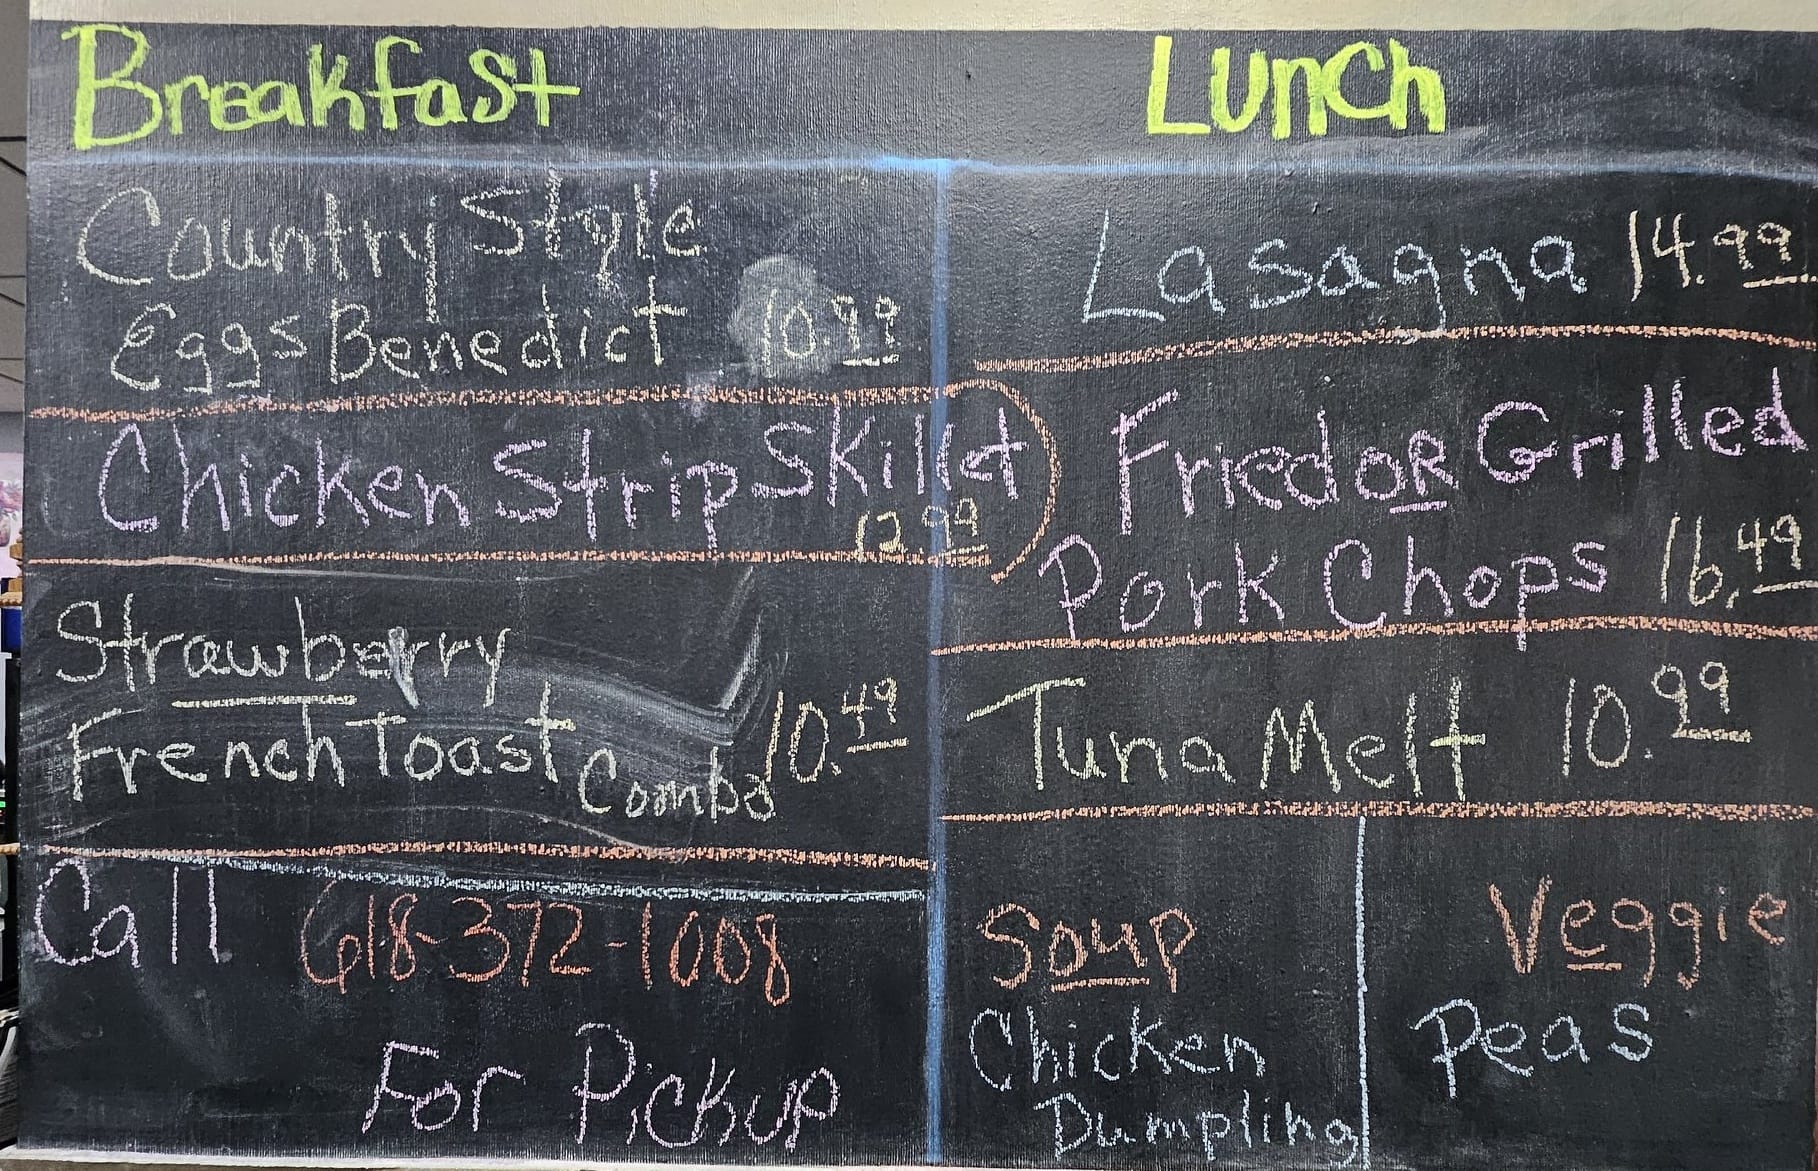 Breakfast
Country Style
Eggs Benedict 10.99
Chicken Strip Skillet
12.99
Strawberry
French Toast Combo 10.49
Call 618-372-1008
For Pickup
Lunch
Lasagna 14.99
Fried OR Grilled
Pork Chops 16.49
Tuna Melt 10.99
Soup
Chicken
Dumpling
Veggie
Peas